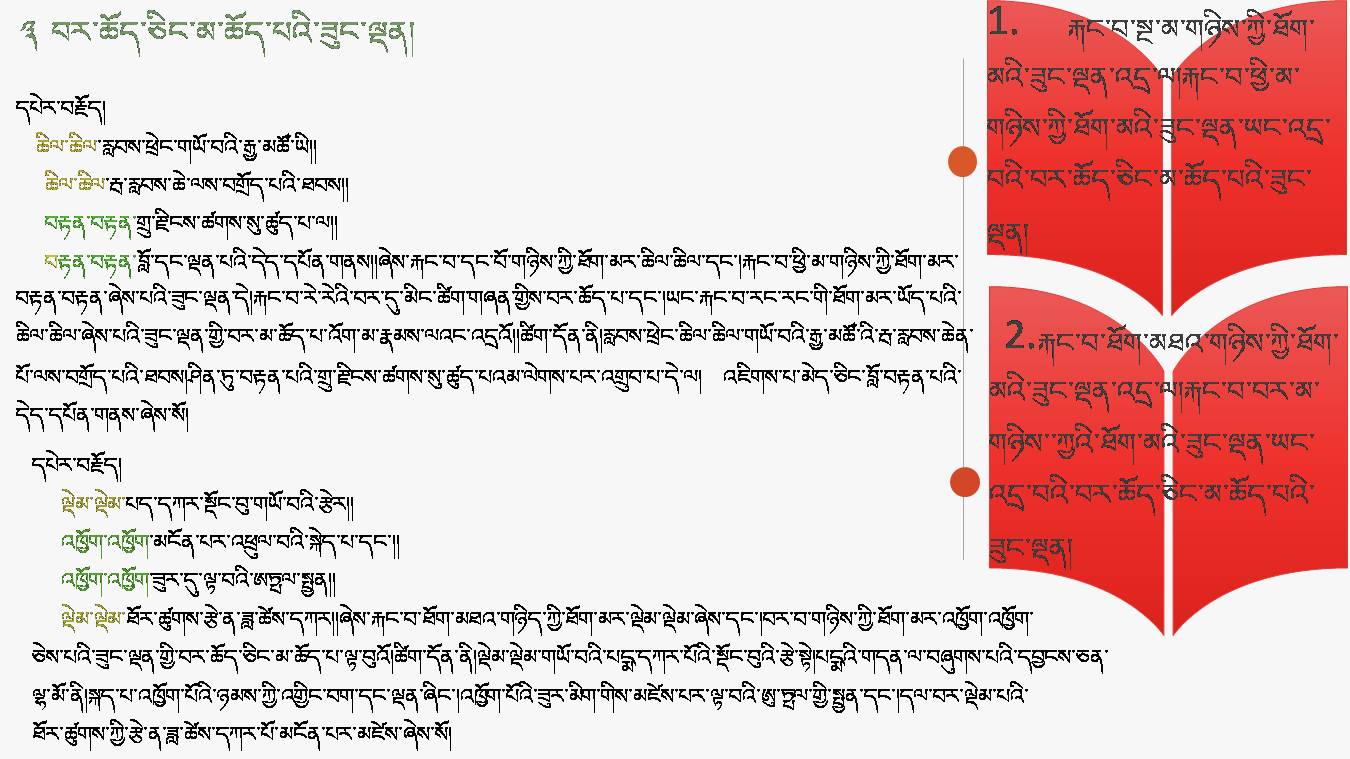 ༣ བར་ཆོད་ཅིང་མ་ཆོད་པའི་ཟུང་ལྡན།
དཔེར་བརྗོད།
ཆིལ་ཆིལ་རླབས་ཕྲེང་གཡོ་བའི་རྒྱ་མཚོ་ཡི།།
ཆིལ་ཆིལ་རྦ་རླབས་ཆེ་ལས་བགྲོད་པའི་ཐབས།།
བརྟན་བརྟན་གྲུ་རྫིངས་ཚགས་སུ་ཚུད་པ་ལ།།
བརྟན་བརྟན་བློ་དང་ལྡན་པའི་དེད་དཔོན་གནས།།ཞེས་རྐང་བ་དང་པོ་གཉིས་ཀྱི་ཐོག་མར་ཆིལ་ཆིལ་དང་།རྐང་བ་ཕྱི་མ་གཉིས་ཀྱི་ཐོག་མར་
བརྟན་བརྟན་ཞེས་པའི་ཟུང་ལྡན་དེ།རྐང་བ་རེ་རེའི་བར་དུ་མིང་ཚིག་གཞན་གྱིས་བར་ཆོད་པ་དང་།ཡང་རྐང་བ་རང་རང་གི་ཐོག་མར་ཡོད་པའི་
ཆིལ་ཆིལ་ཞེས་པའི་ཟུང་ལྡན་གྱི་བར་མ་ཆོད་པ་འོག་མ་རྣམས་ལའང་འདྲའོ།།ཚིག་དོན་ནི།རླབས་ཕྲེང་ཆིལ་ཆིལ་གཡོ་བའི་རྒྱ་མཚོ་འི་རྦ་རླབས་ཆེན་
པོ་ལས་བགྲོད་པའི་ཐབས།ཤིན་ཏུ་བརྟན་པའི་གྲུ་རྫིངས་ཚགས་སུ་ཚུད་པའམ་ལེགས་པར་འགྲུབ་པ་དེ་ལ། འཇིགས་པ་མེད་ཅིང་བློ་བརྟན་པའི་
དེད་དཔོན་གནས་ཞེས་སོ།
དཔེར་བརྗོད།
ལྡེམ་ལྡེམ་པད་དཀར་སྡོང་བུ་གཡོ་བའི་རྩེར།།
འཁྱོག་འཁྱོག་མངོན་པར་འཕྲུལ་བའི་སྐེད་པ་དང་།།
འཁྱོག་འཁྱོག་ཟུར་དུ་ལྟ་བའི་ཨུཏྤལ་སྤྱན།།
ལྡེམ་ལྡེམ་ཐོར་ཚུགས་རྩེ་ན་ཟླ་ཚེས་དཀར།།ཞེས་རྐང་བ་ཐོག་མཐའ་གཉིད་ཀྱི་ཐོག་མར་ལྡེམ་ལྡེམ་ཞེས་དང་།བར་བ་གཉིས་ཀྱི་ཐོག་མར་འཁྱོག་འཁྱོག་
ཅེས་པའི་ཟུང་ལྡན་གྱི་བར་ཆོད་ཅིང་མ་ཆོད་པ་ལྟ་བུའོ།ཚིག་དོན་ནི།ལྡེམ་ལྡེམ་གཡོ་བའི་པདྨ་དཀར་པོའི་སྡོང་བུའི་རྩེ་སྟེ།པདྨའི་གདན་ལ་བཞུགས་པའི་དབྱངས་ཅན་
ལྷ་མོ་ནི།སྐད་པ་འཁྱོག་པོའི་ཉམས་ཀྱི་འགྱིང་བག་དང་ལྡན་ཞིང་།འཁྱོག་པོའི་ཟུར་མིག་གིས་མཛེས་པར་ལྟ་བའི་ཨུ་ཏྤལ་གྱི་སྤྱན་དང་།དལ་བར་ལྡེམ་པའི་
ཐོར་ཚུགས་ཀྱི་རྩེ་ན་ཟླ་ཚེས་དཀར་པོ་མངོན་པར་མཛེས་ཞེས་སོ།
1. རྐང་བ་སྔ་མ་གཉིས་ཀྱི་ཐོག་
མའི་ཟུང་ལྡན་འདྲ་ལ།རྐང་བ་ཕྱི་མ་
གཉིས་ཀྱི་ཐོག་མའི་ཟུང་ལྡན་ཡང་འདྲ་
བའི་བར་ཆོད་ཅིང་མ་ཆོད་པའི་ཟུང་
ལྡན།
2.རྐང་བ་ཐོག་མཐའ་གཉིས་ཀྱི་ཐོག་
མའི་ཟུང་ལྡན་འདྲ་ལ།རྐང་བ་བར་མ་
གཉིས་་ཀྱའི་ཐོག་མའི་ཟུང་ལྡན་ཡང་
འདྲ་བའི་བར་ཆོད་ཅིང་མ་ཆོད་པའི་
ཟུང་ལྡན།